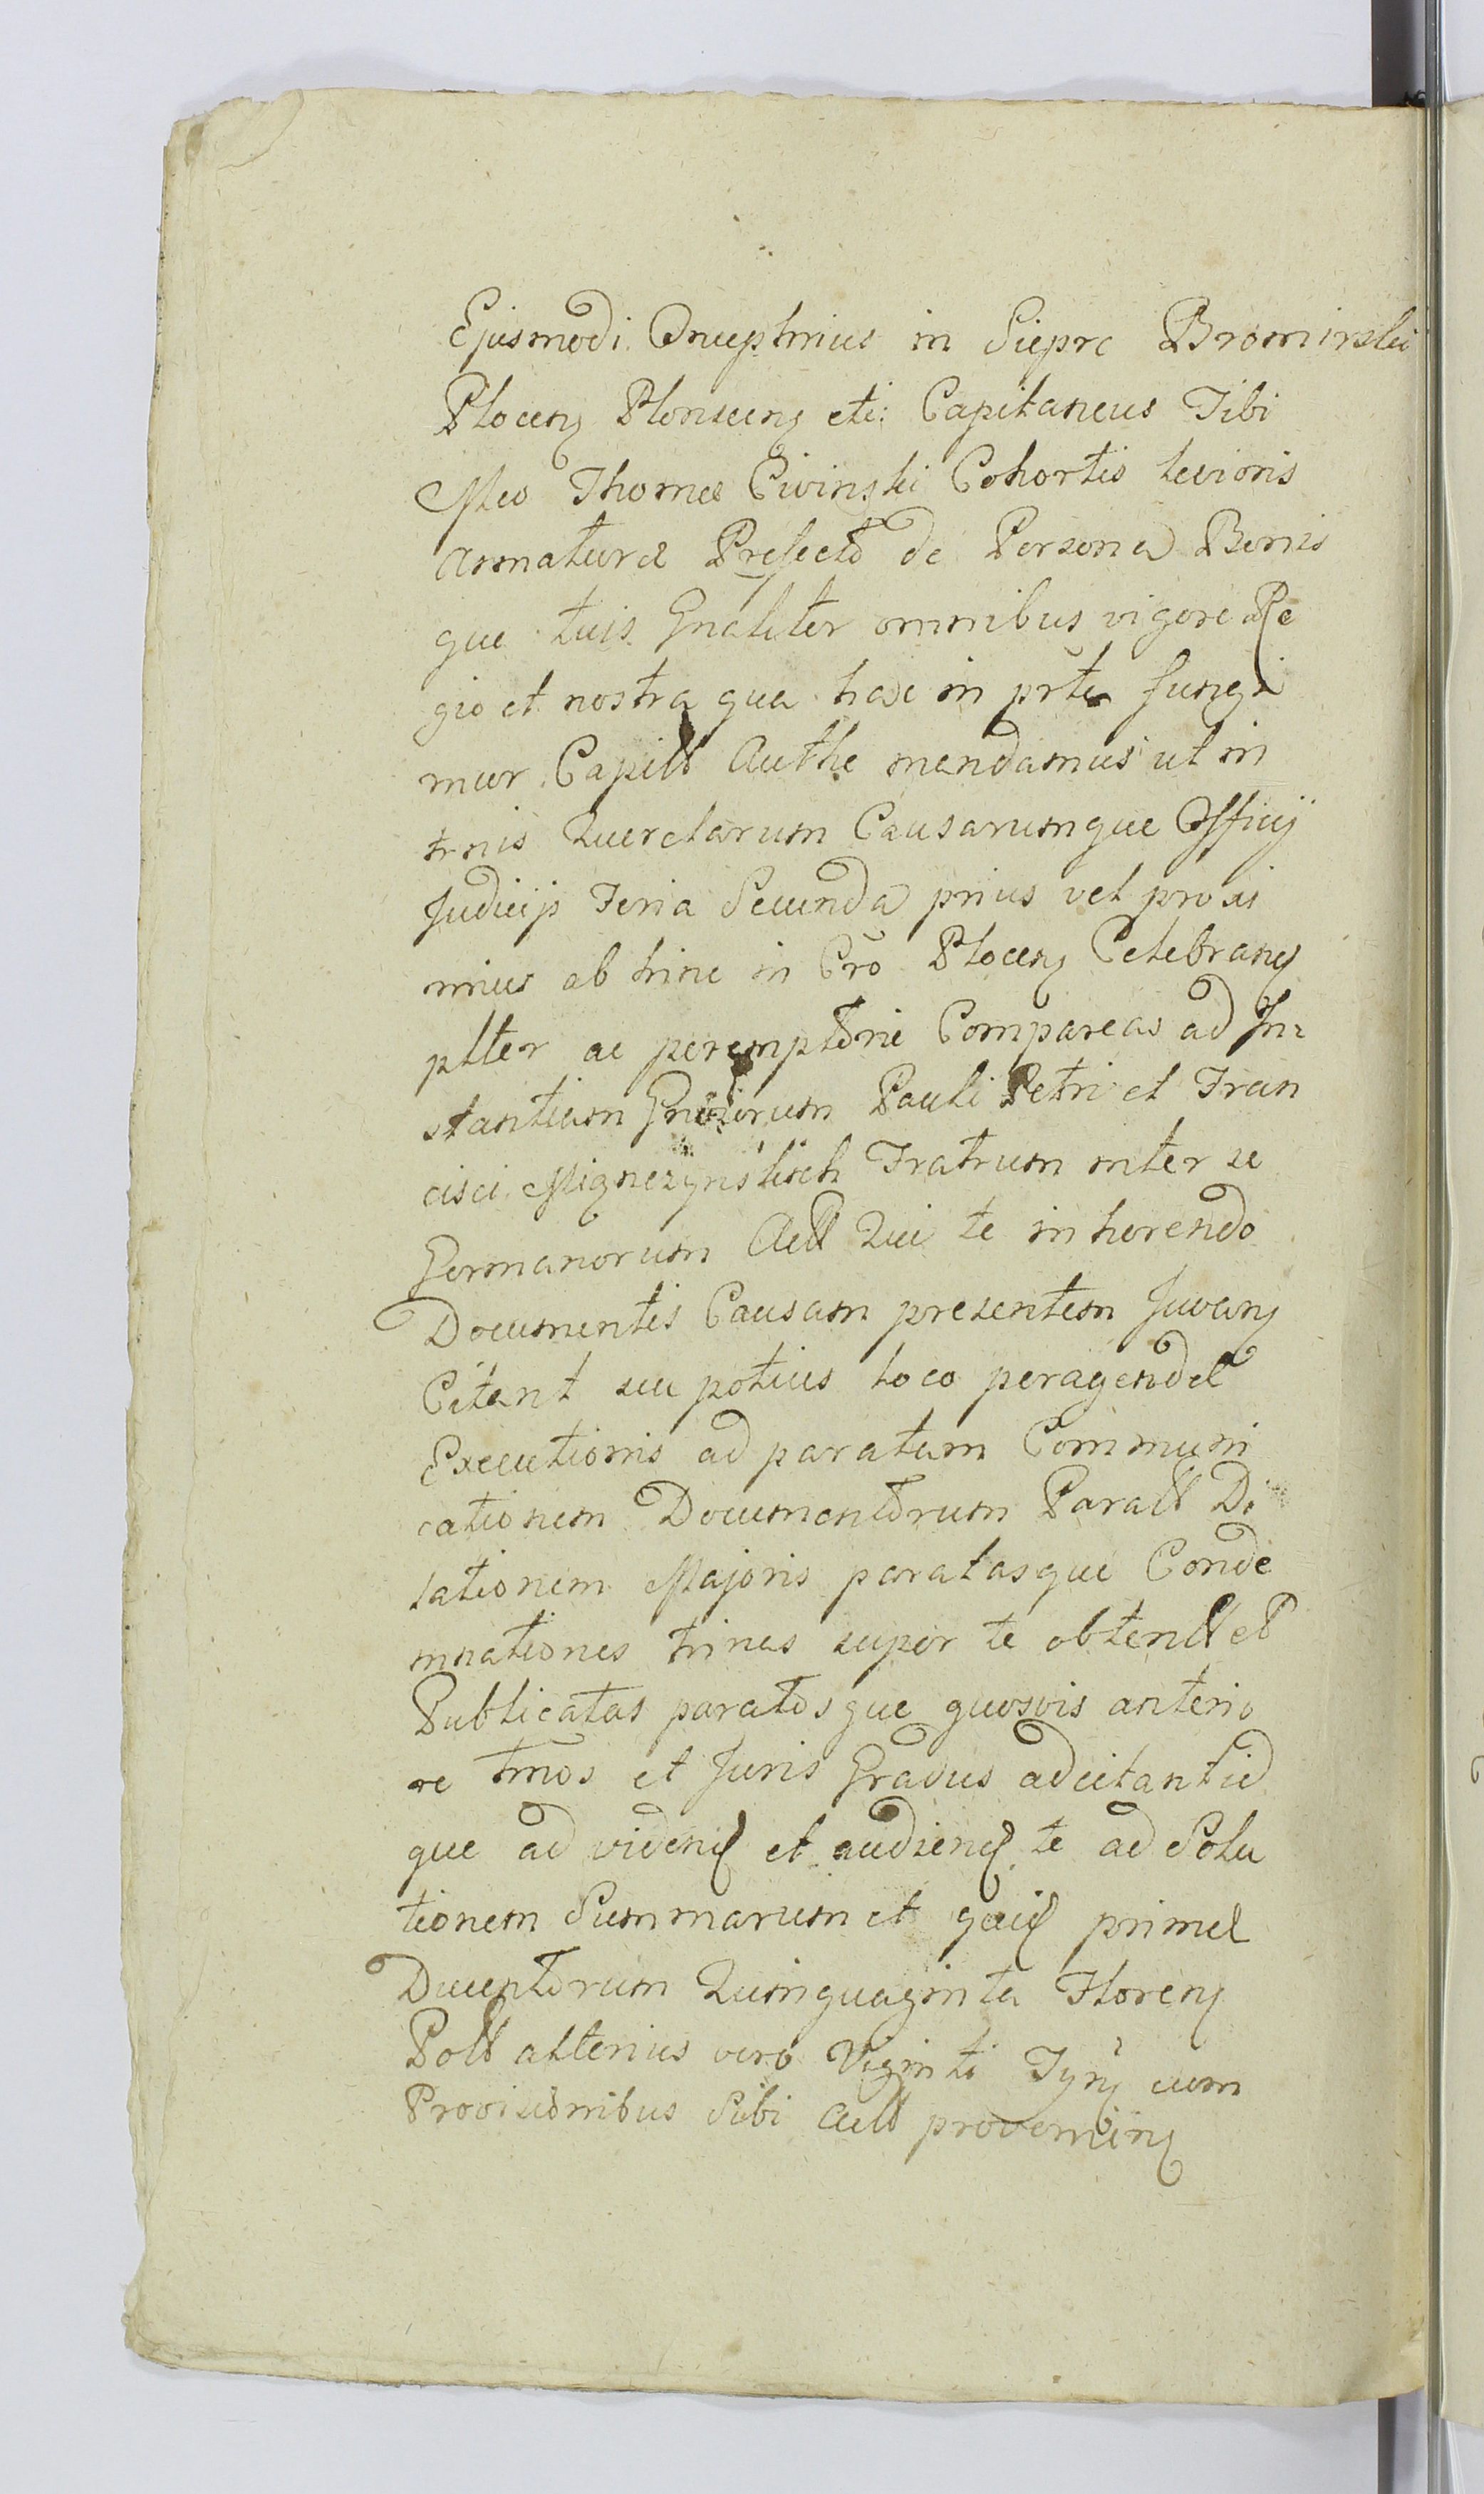 Ejusmodi Onuphrius in Siepre Bromirski
Plocen Plonscen etc: Capitaneus Tibi
Mco Thomæ Civinski Cohortis levioris
armaturæ Præfecto de Persona Bonis
que tuis Gnaliter omnibus vigore Re
gio et nostra qua hac in prte fungi
mur Capitt Authe mandamus ut in
trnis Querelarum Causarumque Officij
Judicijs Feria Secunda prius vel proxi
mius ab hinc in Cro Plocen Celebran
pltter ac peremptorie Compareas ad In:
stantiam Gnrorum Pauli Petri et Fran
cisci Migneznskich Fratrum inter se
Germanorum Actt Qui te inherendo
Documentis Causam presentem Juvan
Citant seu potius loco peragendæ
Executionis ad paratam Communi
cationem Documentorum Paratt Di
lationem Majoris paratasque Conde
mnationes trinas super te obtentt et
Publicatas paratosque quosvis anterio
re trmos et Juris Gradus adcitantid
que ad viden et audien te ad Solu
tionem Summarum et quid primæ
Ducentorum Quinquaginta Floren
Poltt alterius vero Viginti Tyn cum
Provisionibus Sibi Actt provenien